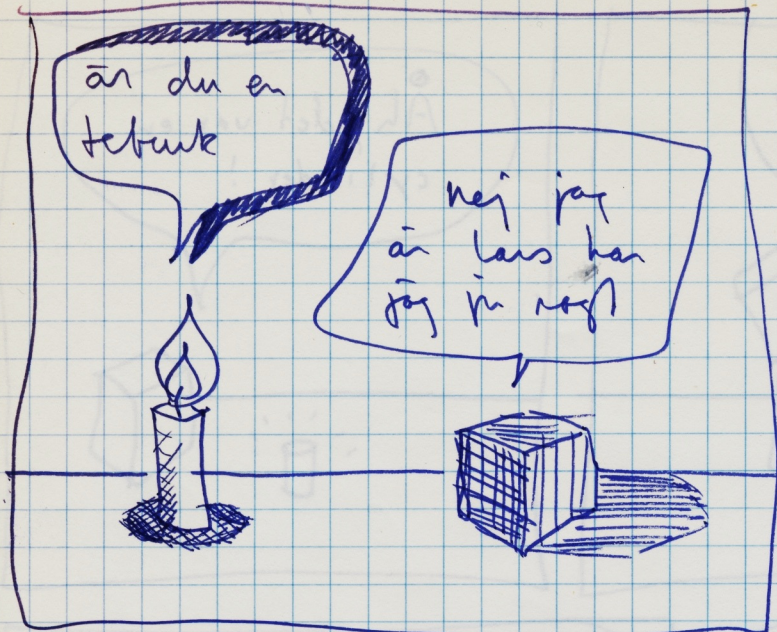 är du en
tebuck
nej jag
är lars har
jag ju sagt